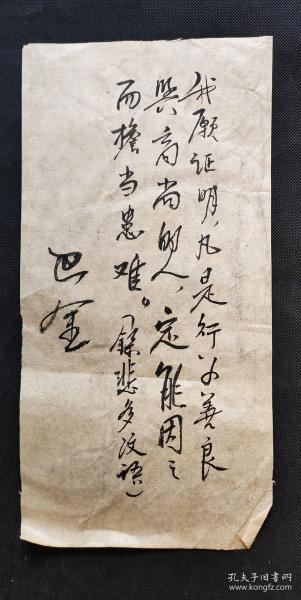 我願证明,凡是行为善良
與高尚的人,定能因之
而擔当患难。(錄悲多汶語)
巴金
孔夫子旧书网